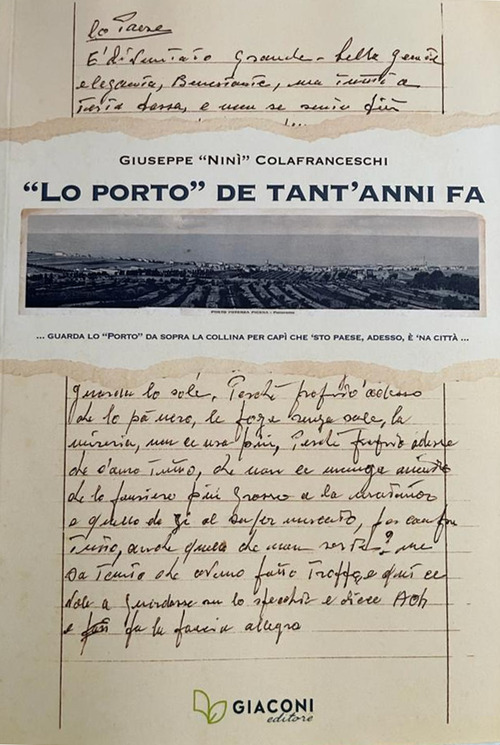 lo Paese
Grande
eleganza, Benestante, ma tutti a
testa bassa, e non se
GIUSEPPE “NINÌ” COLAFRANCESCHI
“LO PORTO” DE TANT’ANNI FA
PORTO POTENZA PICENA - Panorama
... GUARDA LO “PORTO” DA SOPRA LA COLLINA PER CAPÌ CHE ‘STO PAESE, ADESSO, È ‘NA CITTÀ ...
lo sole. Perché proprio adesso
che lo pà nero, le foje senza sale, la
miseria, non ce sta più, Perché proprio adesso
che c'avemo tutto, che non ce manca niente
che lo pensiero più grosso è la
è quello de gì al supermercato, per
tutto, anche quello che non serve? me
sa tanto che avemo fatto troppo e qui ce
vole a guardasse su lo specchio e dicce Aoh
e fà la faccia allegra
GIACONI
editore